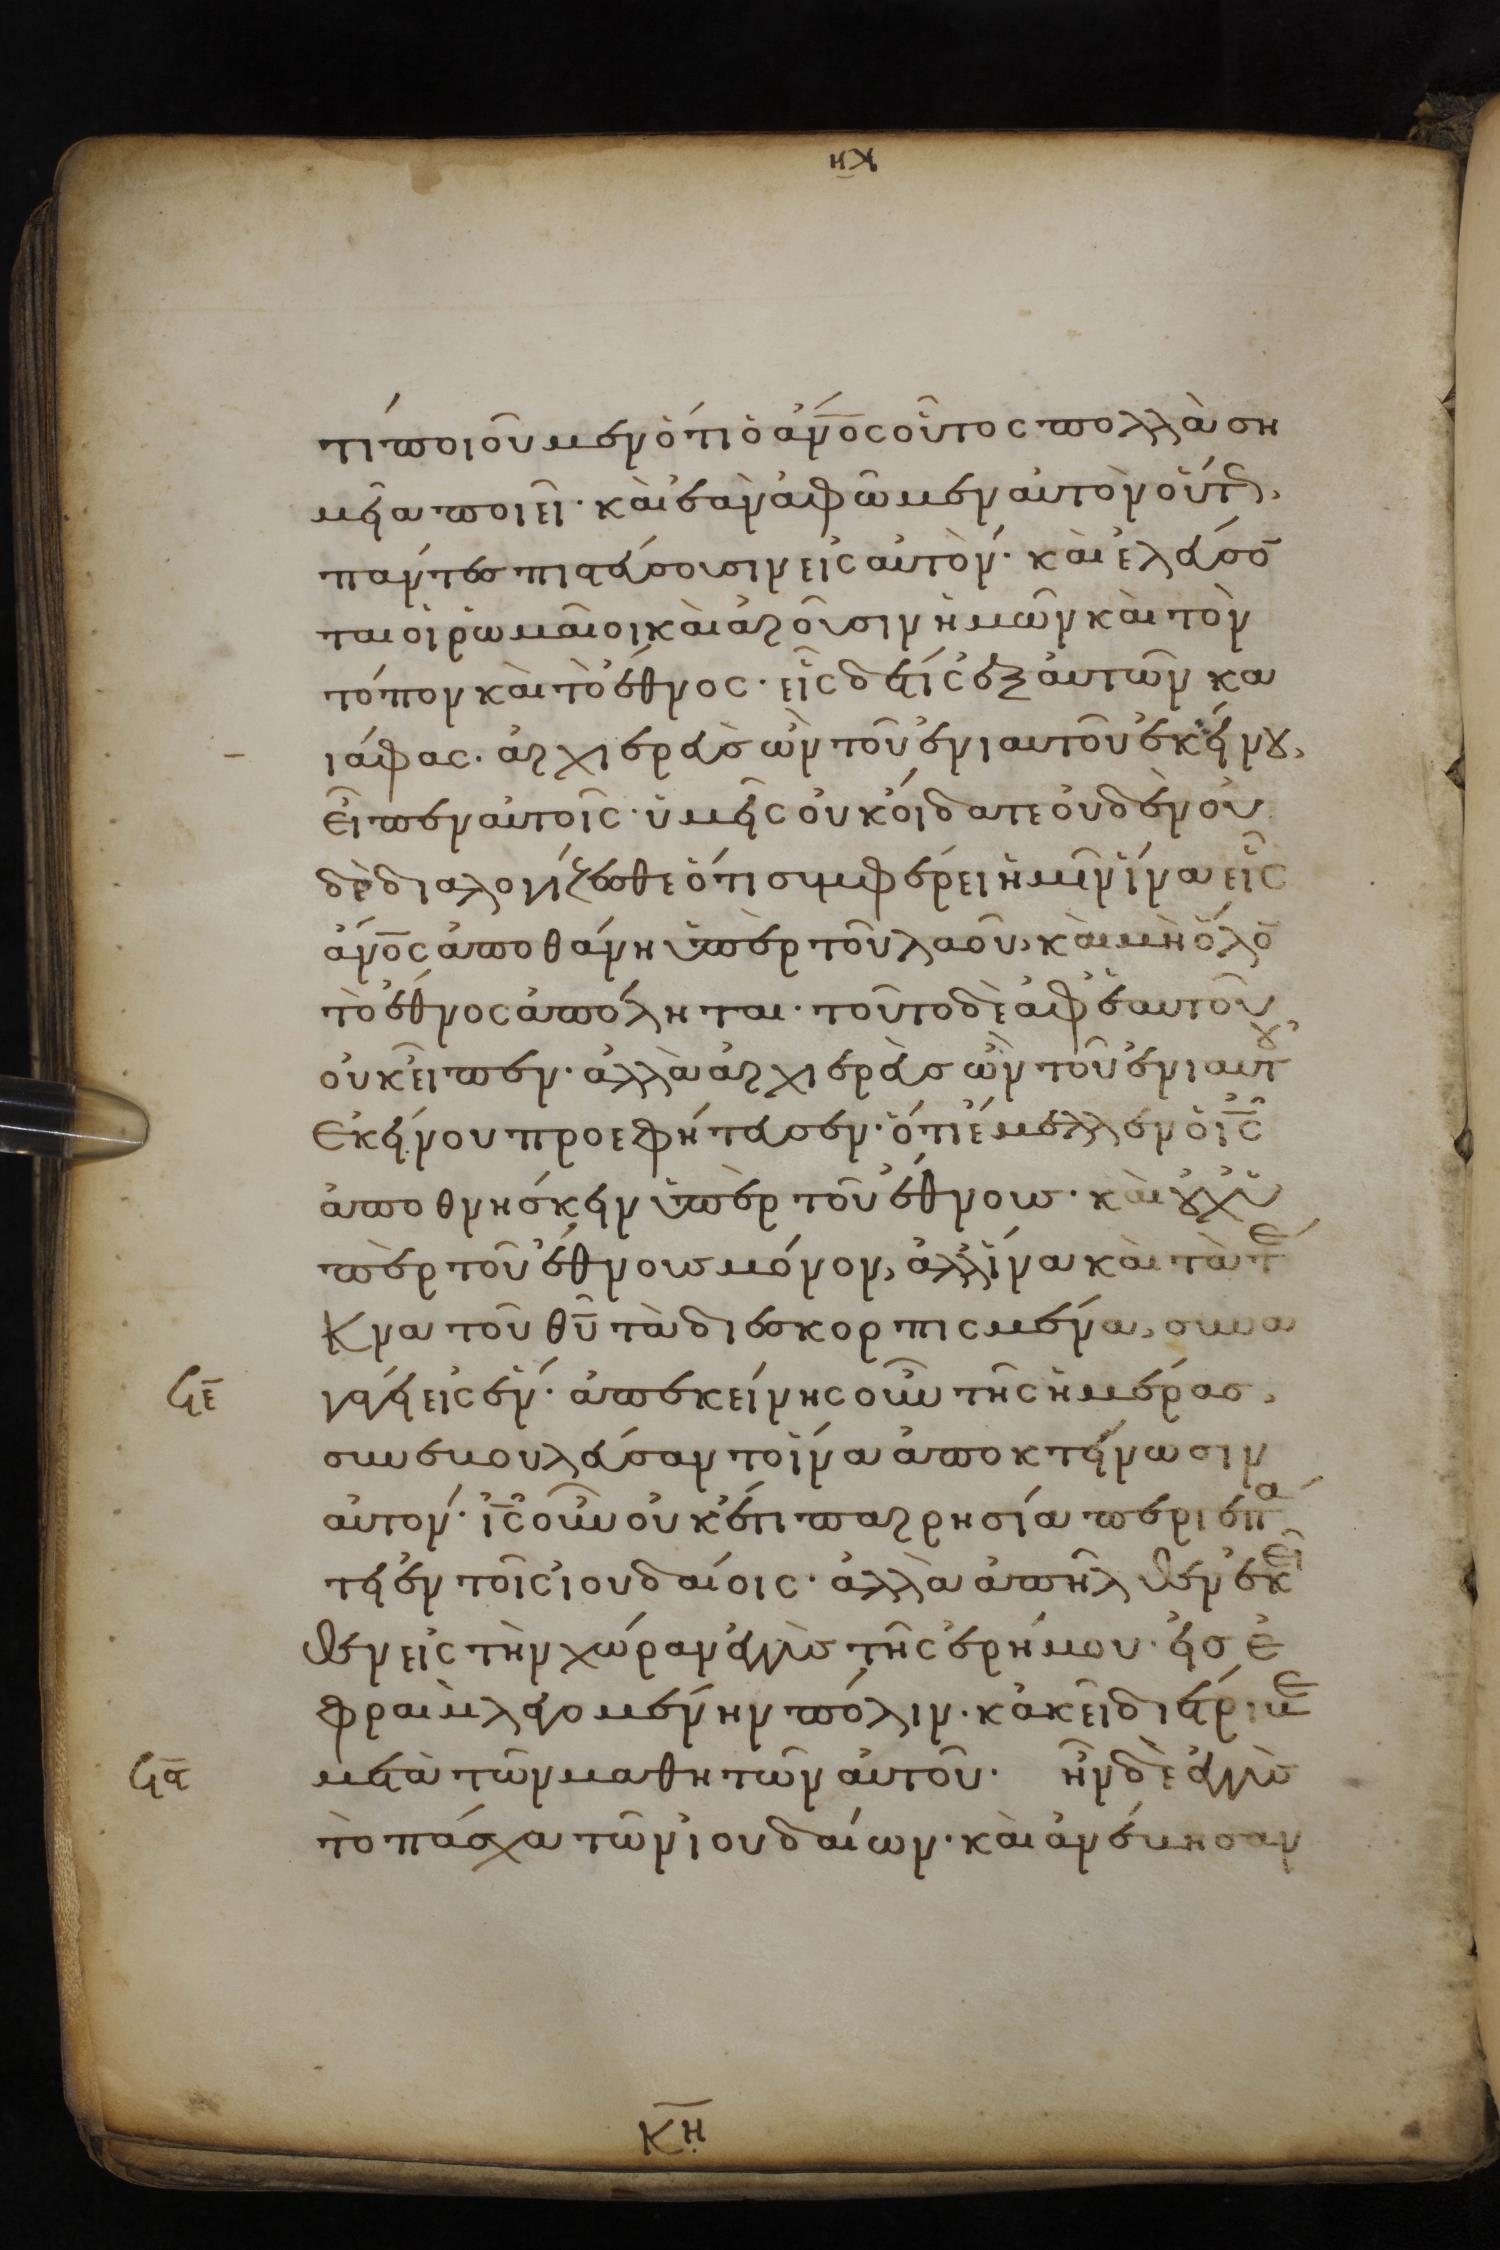 κη
τί ποιοῦμεν ὅτι ὁ ἄν̅ο̅ς οὗτος πολλὰ ση
μεῖα ποιεῖ· καὶ ἐὰν ἀφῶμεν αὐτὸν οὕτ̑,
πάντες πιστεύσουσιν εἰς αὐτόν· καὶ ἐλεύσο̅
ται οἱ ῥωμαῖοι καὶ ἀροῦσιν ἡμῶν καὶ τὸν
τόπον καὶ τὸ ἔθνος· εἷς δέ τις ἐξ αὐτῶν κα
ϊάφας· ἀρχιερεὺς ὢν τοῦ ἐνιαυτοῦ ἐκείνου,
εἶπεν αὐτοῖς· ὑμεῖς οὐκ οἴδατε οὐδὲν οὐ
δὲ διαλογίζεσθε ὅτι συμφέρει ἡμῖν ἵνα εἷς
ἄν̅ο̅ς ἀποθάνη ὑπὲρ τοῦ λαοῦ, καὶ μὴ ὅλο̅
τὸ ἔθνος ἀπόληται· τοῦτο δὲ ἀφ' ἑαυτοῦ
οὐκ εἶπεν· ἀλλὰ ἀρχιερεὺς ὢν τοῦ ἐνιαυτου
ἐκείνου προεφήτευσεν· ὅτι ἔμελλεν ὁ ι̅ς̅
ἀποθνήσκειν ὑπὲρ τοῦ ἔθνους· καὶ οὐχ ὑ
πὲρ τοῦ ἔθνους μόνον, ἀλλ' ἵνα καὶ τὰ τέ
κνα τοῦ θ̅υ̅ τὰ διεσκορπισμένα, συνα
γάγη εἰς ἕν· ἀπ' ἐκείνης οὖν τῆς ἡμέρας,
ϟ̅ε̅
συνεβουλεύσαντο ἵνα ἀποκτείνωσιν
αὐτόν· ι̅ς̅ οὖν οὐκ ἔτι παρρησία περιεπά
τει ἐν τοῖς ἰουδαίοις· ἀλλὰ ἀπῆλθεν ἐκεῖ
θεν εἰς τὴν χώραν ἐγγὺς τῆς ἐρήμου· εἰς ἐ
φραὶμ λεγομένην πόλιν· κἀκεῖ διέτριβε
μετὰ τῶν μαθητῶν αὐτοῦ· ἦν δὲ ἐγγὺς
ϟ̅ϛ̅
τὸ πάσχα τῶν ἰουδαίων· καὶ ἀνέβησαν
κ̅η̅